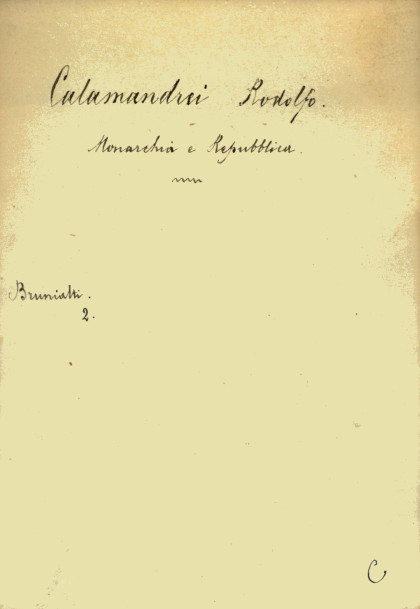 Calamandrei Rodolfo.
Monarchia e Repubblica.
Brunialti.
2.
C